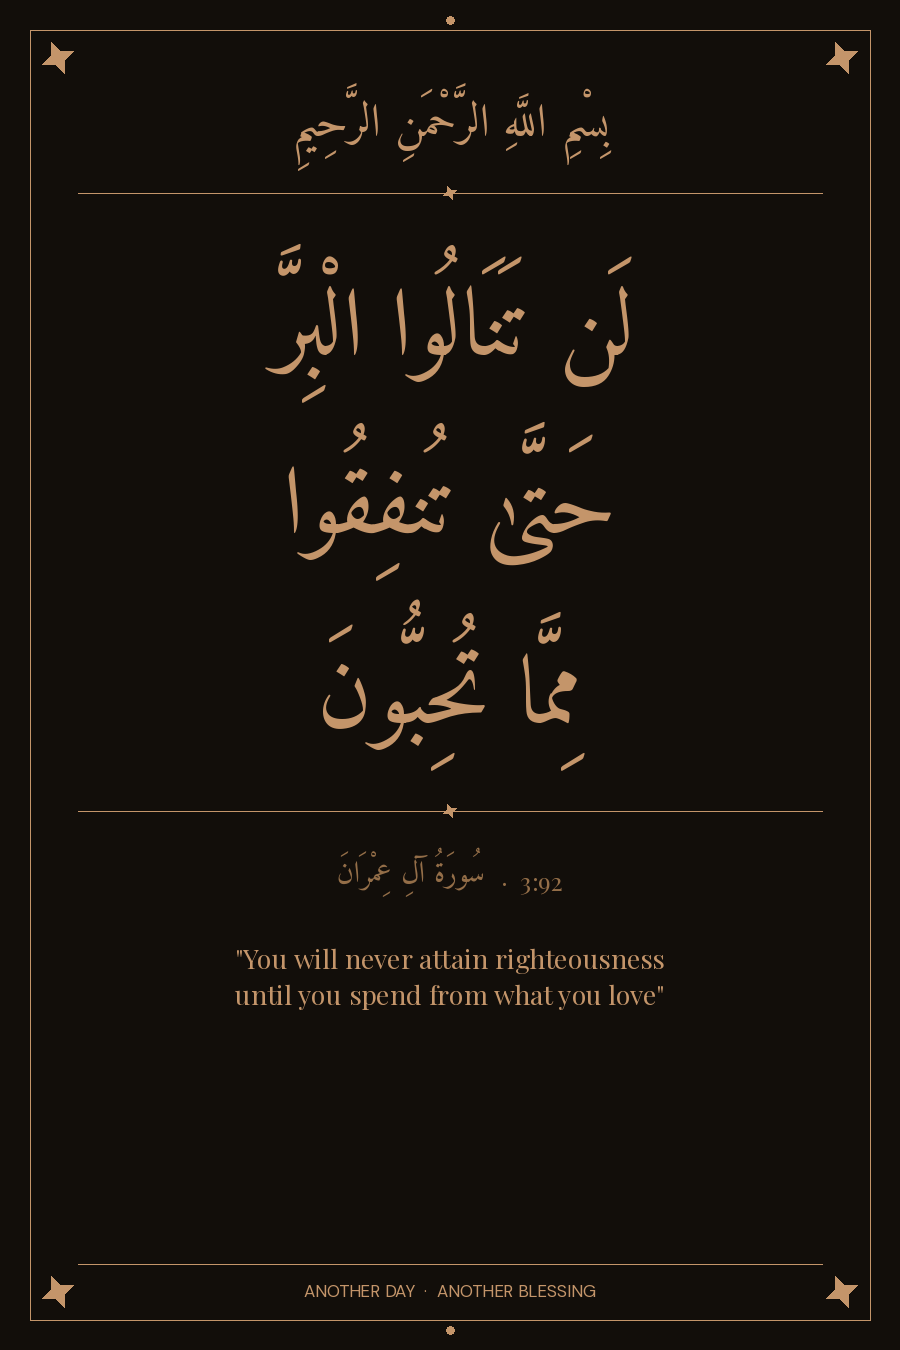 بِسْمِ اللَّهِ الرَّحْمَنِ الرَّحِيمِ
لَن تَنَالُوا الْبِرَّ
حَتَّىٰ تُنفِقُوا
مِمَّا تُحِبُّونَ
سُورَةُ آلِ عِمْرَانَ · 3:92
"You will never attain righteousness
until you spend from what you love"
ANOTHER DAY · ANOTHER BLESSING